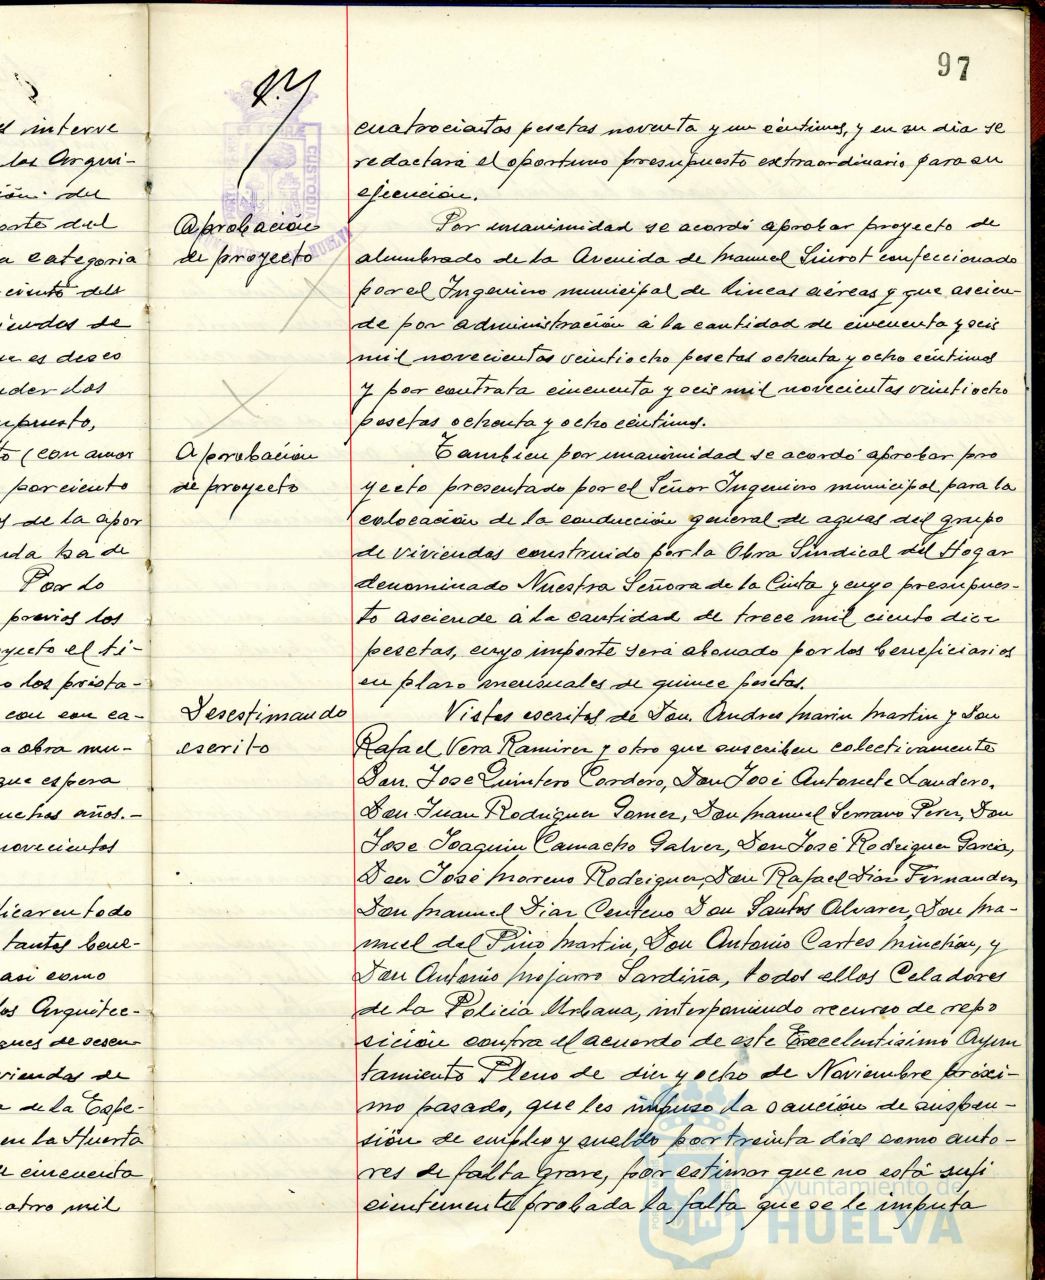 97
s interve
los Arqui-
ión. del
orte del
a categoria
ciento del
iendos de
es deseo
der los
puesto,
to (con amor
por ciento
s de la apor
da ha de
Por lo
previos los
yecto el ti-
o los presta-
con ca-
a obra mu-
que espera
uchos años.-
novecientos
licar en todo
tantos bene-
asi como
los Arquitec-
viendas de
a de la Espe-
en la Huerta
cincuenta
atro mil
cuatrocientas pesetas noventa y un céntimos, y en su dia se
redactará el oportuno presupuesto extraordinario para su
ejecución.
Aprobación
de proyecto
Por unanimidad se acordó aprobar proyecto de
alumbrado de la Avenida de Manuel Siurot confeccionado
por el Ingeniero municipal de lineas aéreas y que ascien-
de por administración á la cantidad de cincuenta y seis
mil novecientas veintiocho pesetas ochenta y ocho céntimos
y por contrata cincuenta y seis mil novecientas veintiocho
pesetas ochenta y ocho céntimos.
Aprobación
de proyecto
Tambien por unanimidad se acordó aprobar pro
yecto presentado por el Señor Ingeniero municipal para la
colocación de la conducción general de aguas del grupo
de viviendas construido por la Obra Sindical del Hogar
denominado Nuestra Señora de la Cinta y cuyo presupues-
to asciende á la cantidad de trece mil ciento diez
pesetas, cuyo importe será abonado por los beneficiarios
en plazo mensuales de quince pesetas.
Desestimando
escrito
Vistos escritos de Don. Andres Marin Martin y Don
Rafael Vera Ramirez y otro que suscriben colectivamente
Don. José Quintero Cordero, Don José Antonete Landero,
Don Juan Rodriguez Gomez, Don Manuel Serrano Perez, Don
José Joaquin Camacho Galvez, Don José Rodriguez Garcia,
Don José Moreno Rodriguez, Don Rafael Diaz Fernandez,
Don Manuel Diaz Centeno Don Santos Alvarez, Don Ma-
nuel del Pino Martin, Don Antonio Cartes Minchón, y
Don Antonio Mojarro Sardiña, todos ellos Celadores
de la Policia Urbana, interponiendo recurso de repo
sición contra el acuerdo de este Excelentisimo Ayun
tamiento Pleno de diez y ocho de Noviembre próxi-
mo pasado, que les impuso la sanción de suspen-
sión de empleo y sueldo por treinta dias como auto-
res de falta grave, por estimar que no está sufi
cientemente probada la falta que se le imputa
Ayuntamiento de
HUELVA